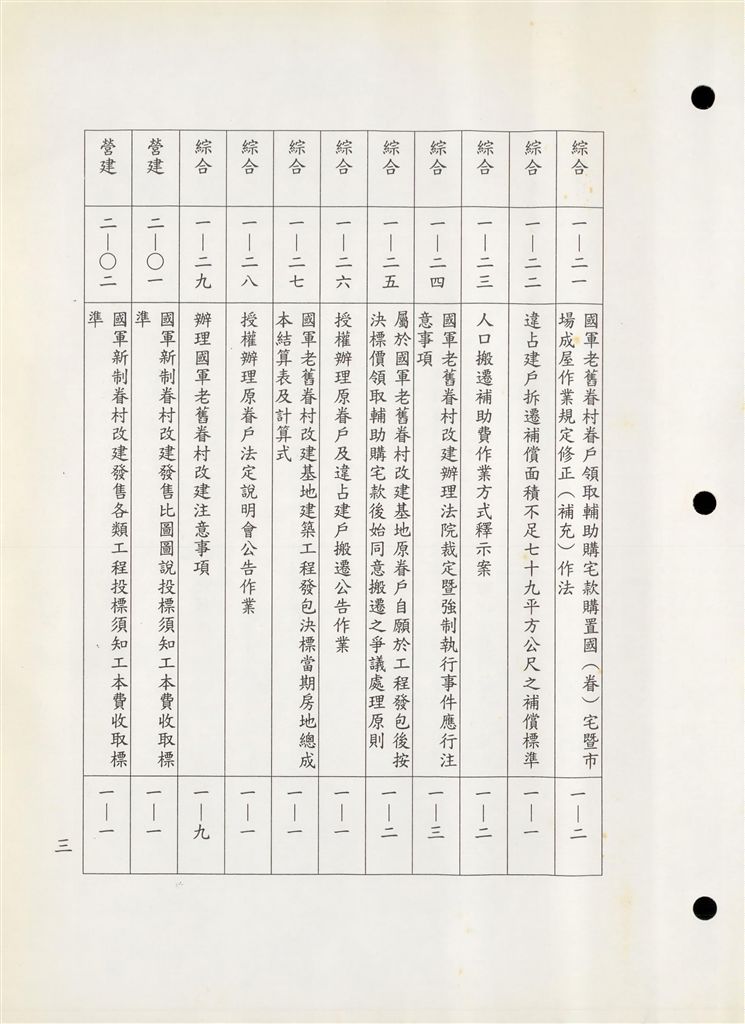 綜合
一—二一
國軍老舊眷村眷戶領取輔助購宅款購置國（眷）宅暨市
場成屋作業規定修正（補充）作法
一—二
綜合
一—二二
違占建戶拆遷補償面積不足七十九平方公尺之補償標準
一—一
綜合
一—二三
人口搬遷補助費作業方式釋示案
一—二
綜合
一—二四
國軍老舊眷村改建辦理法院裁定暨強制執行事件應行注
意事項
一—三
綜合
一—二五
屬於國軍老舊眷村改建基地原眷戶自願於工程發包後按
決標價領取輔助購宅款後始同意搬遷之爭議處理原則
一—二
綜合
一—二六
授權辦理原眷戶及違占建戶搬遷公告作業
一—一
綜合
一—二七
國軍老舊眷村改建基地建築工程發包決標當期房地總成
本結算表及計算式
一—一
綜合
一—二八
授權辦理原眷戶法定說明會公告作業
一—一
綜合
一—二九
辦理國軍老舊眷村改建注意事項
一—九
營建
二—○一
國軍新制眷村改建發售比圖圖說投標須知工本費收取標
準
一—一
營建
二—○二
國軍新制眷村改建發售各類工程投標須知工本費收取標
準
一—一
三